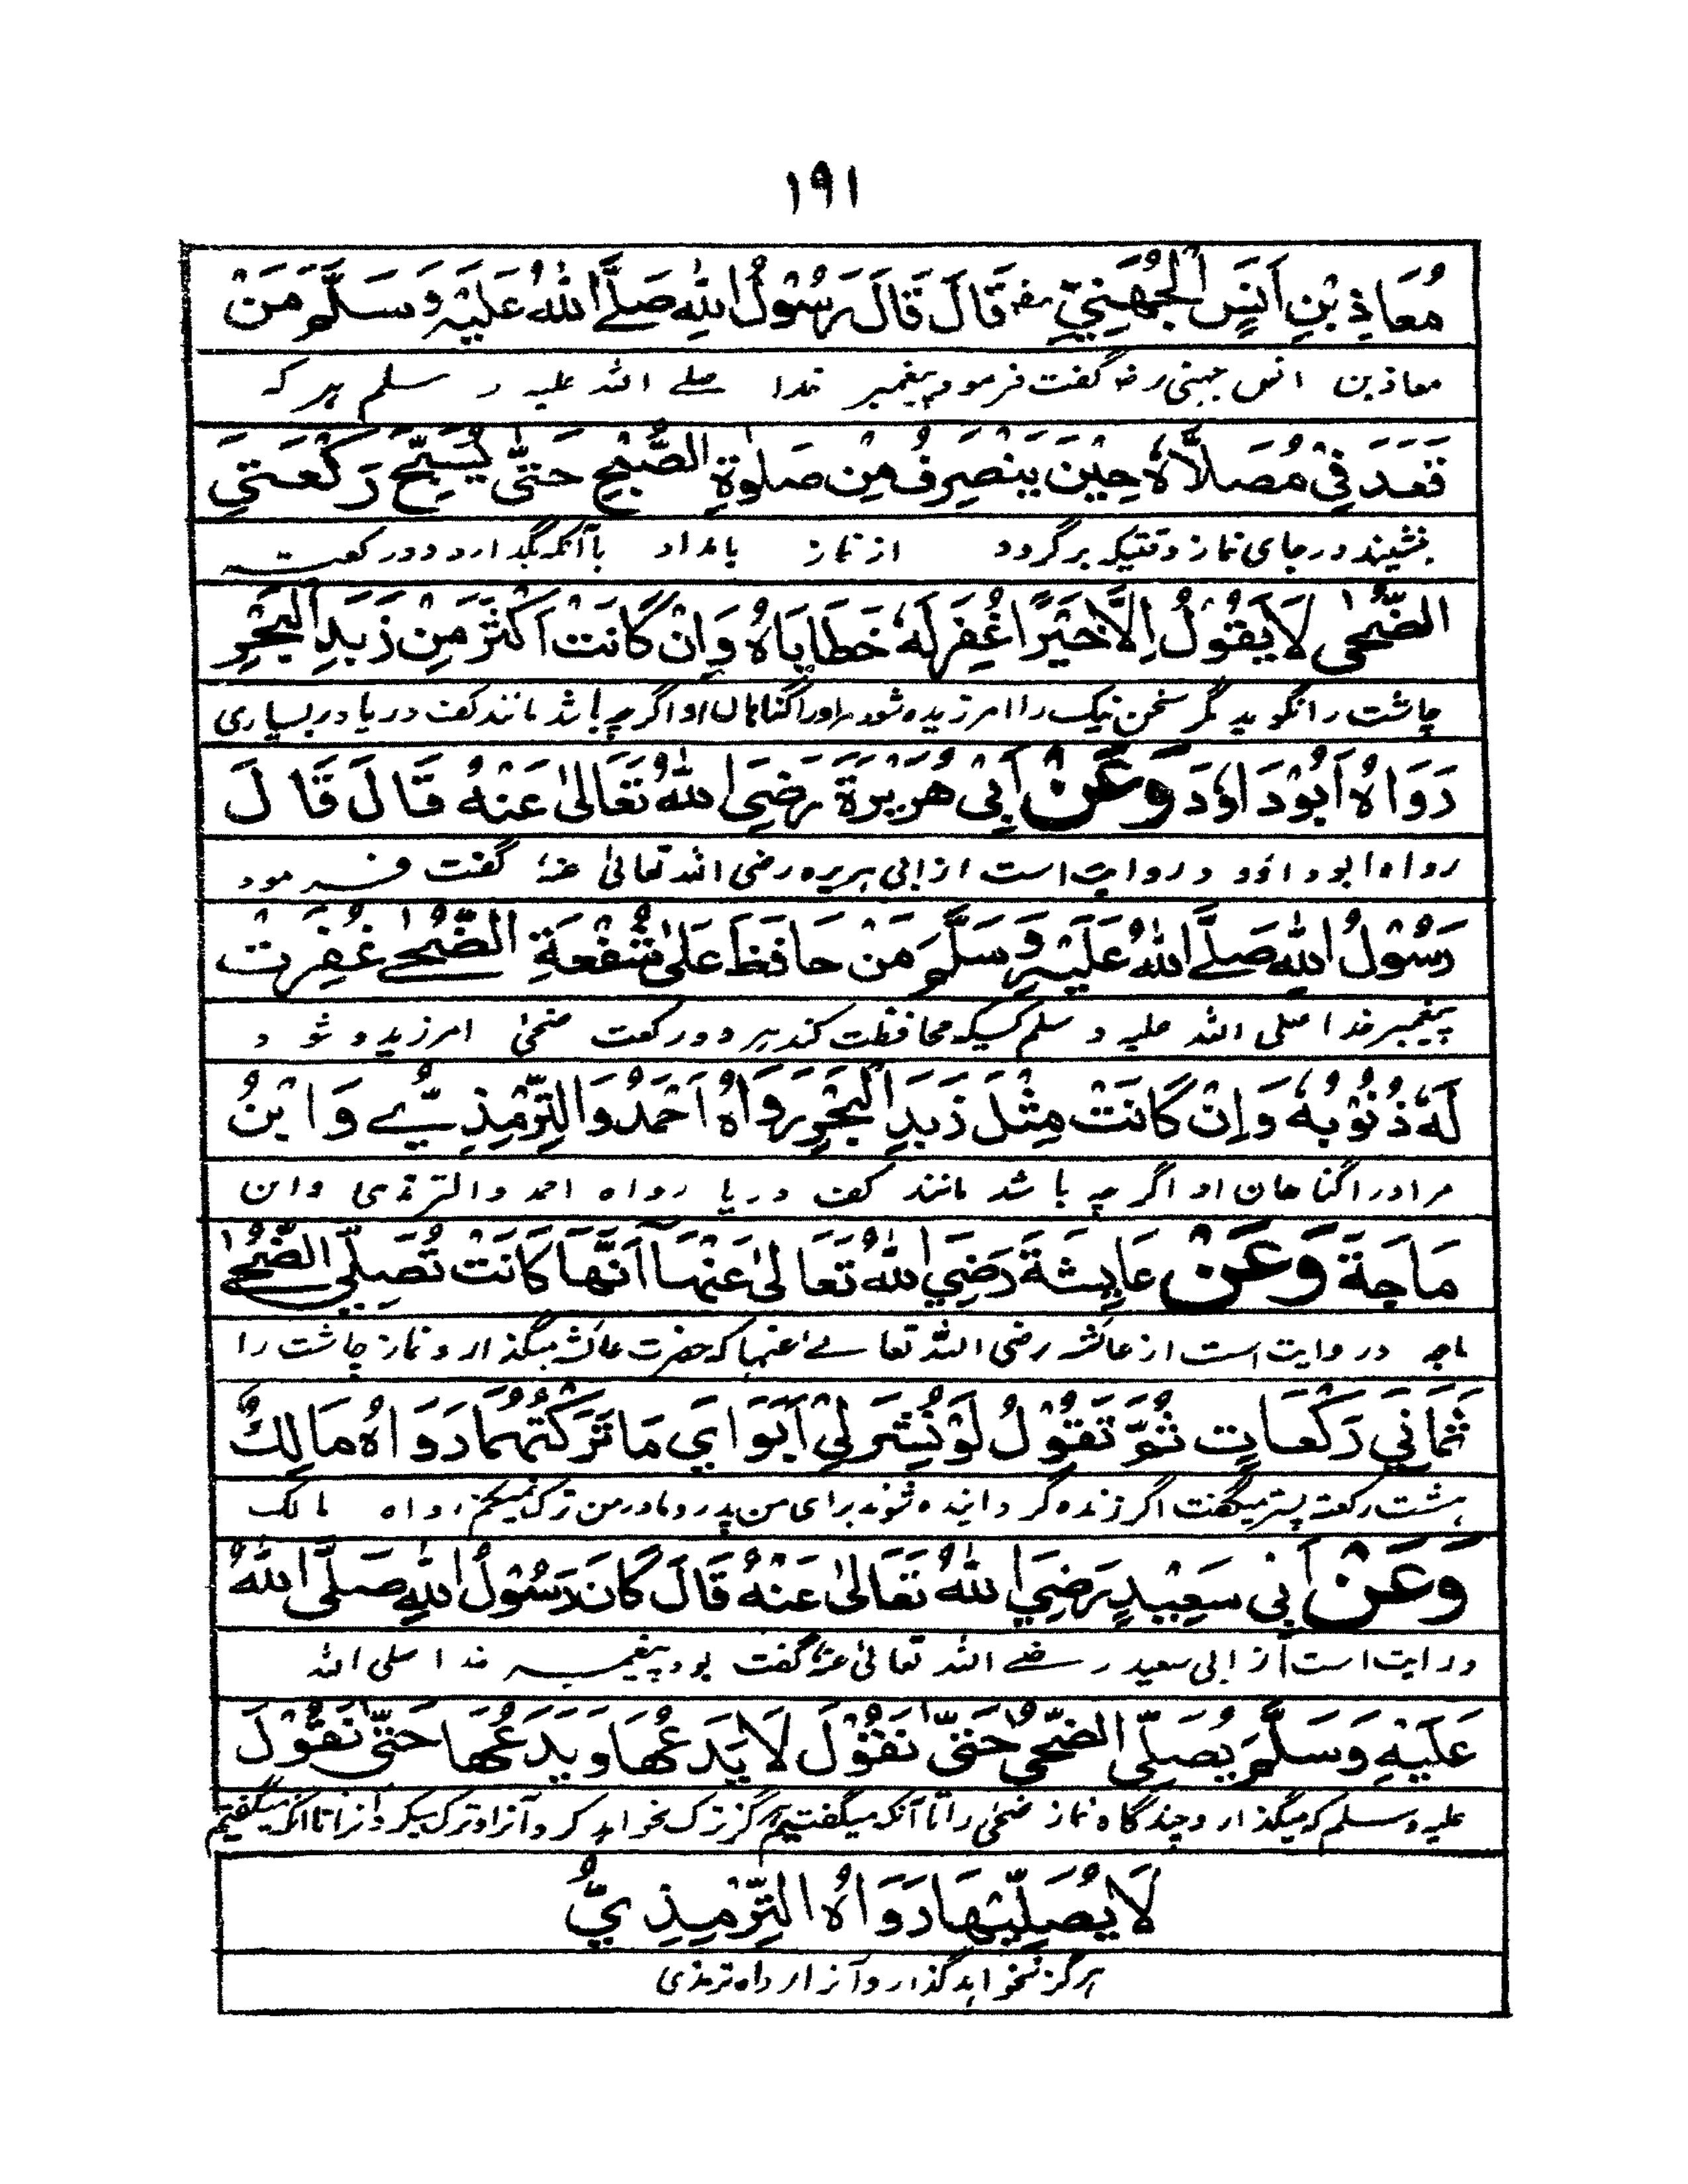 ١٩١
مُعَاذِ بْنِ اَنَسٍ الْجُهَنِيِّ رضـ قَالَ قَالَ رَسُوْلُ اللّٰهِ صَلَّے اللّٰهُ عَلَيْهِ وَسَلَّمَ مَنْ
معاذ بن انس جهنی رضـ گفت فرمود پیغمبر خدا صلے اللّٰه علیه و سلم هر که
قَعَدَ فِيْ مُصَلَّاهُ حِيْنَ يَنْصَرِفُ مِنْ صَلٰوةِ الصُّبْحِ حَتّٰى يُسَبِّحَ رَكْعَتَيِ
بنشیند در جای نماز وقتیکه برگردد از نماز بامداد تا آنکه بگذارد دو رکعت
الضُّحٰى لَا يَقُوْلُ اِلَّا خَيْرًا غُفِرَ لَهٗ خَطَايَاهُ وَاِنْ كَانَتْ اَكْثَرَ مِنْ زَبَدِ الْبَحْرِ
چاشت را نگوید مگر سخن نیک را امرزیده شود مر اورا گناهان او اگر چه باشد مانند کف دریا در بسیاری
رَوَاهُ اَبُوْدَاوٗدَ وَعَنْ اَبِيْ هُرَيْرَةَ رَضِيَ اللّٰهُ تَعَالٰى عَنْهُ قَالَ قَالَ
رواه ابوداؤد و روایت است از ابی هریره رضی اللّٰه تعالیٰ عنهٗ گفت فرمود
رَسُوْلُ اللّٰهِ صَلَّے اللّٰهُ عَلَيْهِ وَسَلَّمَ مَنْ حَافَظَ عَلٰى شُفْعَةِ الضُّحٰے غُفِرَتْ
پیغمبر خدا صلی اللّٰه علیه و سلم کسیکه محافظت کند بر دو رکعت ضحیٰ امرزیده شود
لَهٗ ذُنُوْبُهٗ وَاِنْ كَانَتْ مِثْلَ زَبَدِ الْبَحْرِ رَوَاهُ اَحْمَدُ وَالتِّرْمِذِيُّ وَابْنُ
مر اورا گناهان او اگر چه باشد مانند کف دریا رواه احمد والترمذی وابن
مَاجَةَ وَعَنْ عَايِشَةَ رَضِيَ اللّٰهُ تَعَالٰى عَنْهَا اَنَّهَا كَانَتْ تُصَلِّى الضُّحٰے
ماجه و روایت است از عائشه رضی اللّٰه تعالےٰ عنها که حضرت عائشه میگذارد نماز چاشت را
ثَمَانِيَ رَكْعَاتٍ ثُمَّ تَقُوْلُ لَوْ نُشِرَ لِيْ اَبَوَايَ مَا تَرَكْتُهُمَا رَوَاهُ مَالِكٌ
هشت رکعت پستر میگفت اگر زنده گردانیده شوند برای من پدر و مادر من ترک نمیکنم رواه مالک
وَعَنْ اَبِيْ سَعِيْدٍ رَضِيَ اللّٰهُ تَعَالٰى عَنْهُ قَالَ كَانَ رَسُوْلُ اللّٰهِ صَلَّى اللّٰهُ
و روایت است از ابی سعید رضے اللّٰه تعالیٰ عنهٗ گفت بود پیغمبر خدا صلی اللّٰه
عَلَيْهِ وَسَلَّمَ يُصَلِّى الضُّحٰى حَتّٰى نَقُوْلَ لَا يَدَعُهَا وَيَدَعُهَا حَتّٰى نَقُوْلَ
علیه وسلم که میگذارد چند گاه نماز ضحٰی را تا آنکه میگفتیم هرگز ترک نخواهد کرد آنرا و ترک میکرد آنرا تا آنکه میگفتیم
لَا يُصَلِّيْهَا رَوَاهُ التِّرْمِذِيُّ
هرگز نخواهد گذارد آنرا رواه ترمذی